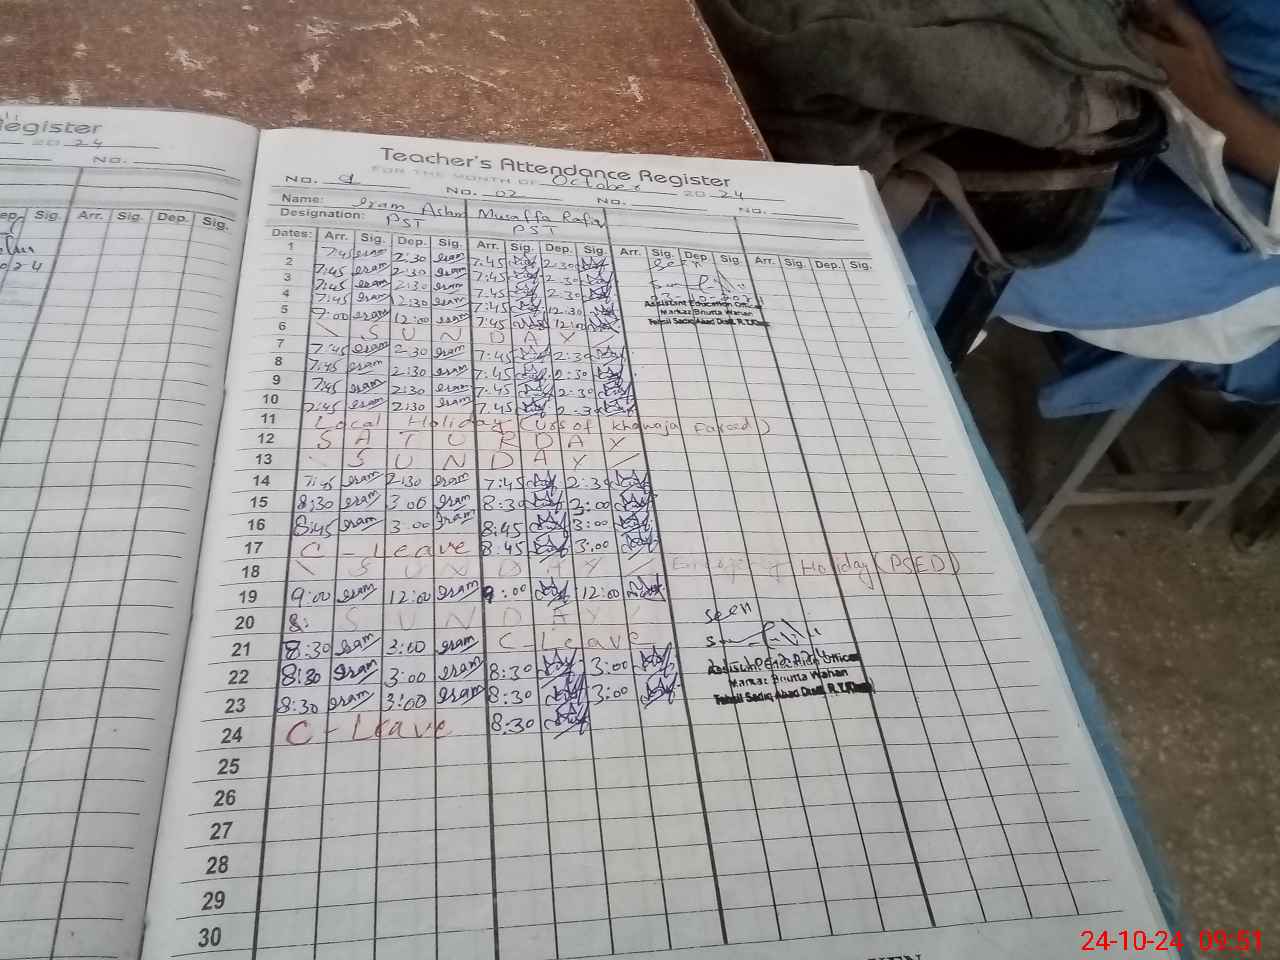 Register
20 24
No.
Dep. Sig. Arr. Sig. Dep. Sig.
Teacher's Attendance Register
FOR THE MONTH OF October 20 24
No. No. 02 No. No.
Name: Iram
Designation: PST PST
Dates: Arr. Sig. Dep. Sig. Arr. Sig. Dep. Sig. Arr. Sig. Dep. Sig. Arr. Sig. Dep. Sig.
1 7:45 Iram 2:30 Iram 7:45 2:30 Seen
2 7:45 Iram 2:30 Iram 7:45 2:30
3 7:45 Iram 2:30 Iram 7:45 2:30
Assistant Education Officer
4 7:45 Iram 2:30 Iram 7:45 12:30
Markaz Bhutta Wahan
5 9:00 Iram 12:00 Iram 7:45 12:00
Tehsil Sadiq Abad Distt. R.Y.Khan
6 SUNDAY
7 7:45 Iram 2:30 Iram 7:45 2:30
8 7:45 Iram 2:30 Iram 7:45 2:30
9 7:45 Iram 2:30 Iram 7:45 2:30
10 7:45 Iram 2:30 Iram 7:45 2:30
11 Local Holiday (Urs of Khawaja Fareed)
12 SATURDAY
13 SUNDAY
14 7:45 Iram 2:30 Iram 7:45 2:30
15 8:30 Iram 3:00 Iram 8:30 3:00
16 8:45 Iram 3:00 Iram 8:45 3:00
17 C-Leave 8:45 3:00
18 SUNDAY Holiday (PSED)
19 9:00 Iram 12:00 Iram 9:00 12:00
20 8: SUNDAY Seen
21 8:30 Iram 3:00 Iram C-Leave
22 8:30 Iram 3:00 Iram 8:30 3:00
Assistant Education Officer
Markaz Bhutta Wahan
23 8:30 Iram 3:00 Iram 8:30 3:00
Tehsil Sadiq Abad Distt. R.Y.Khan
24 C-Leave 8:30
25
26
27
28
29
30
24-10-24 09:51